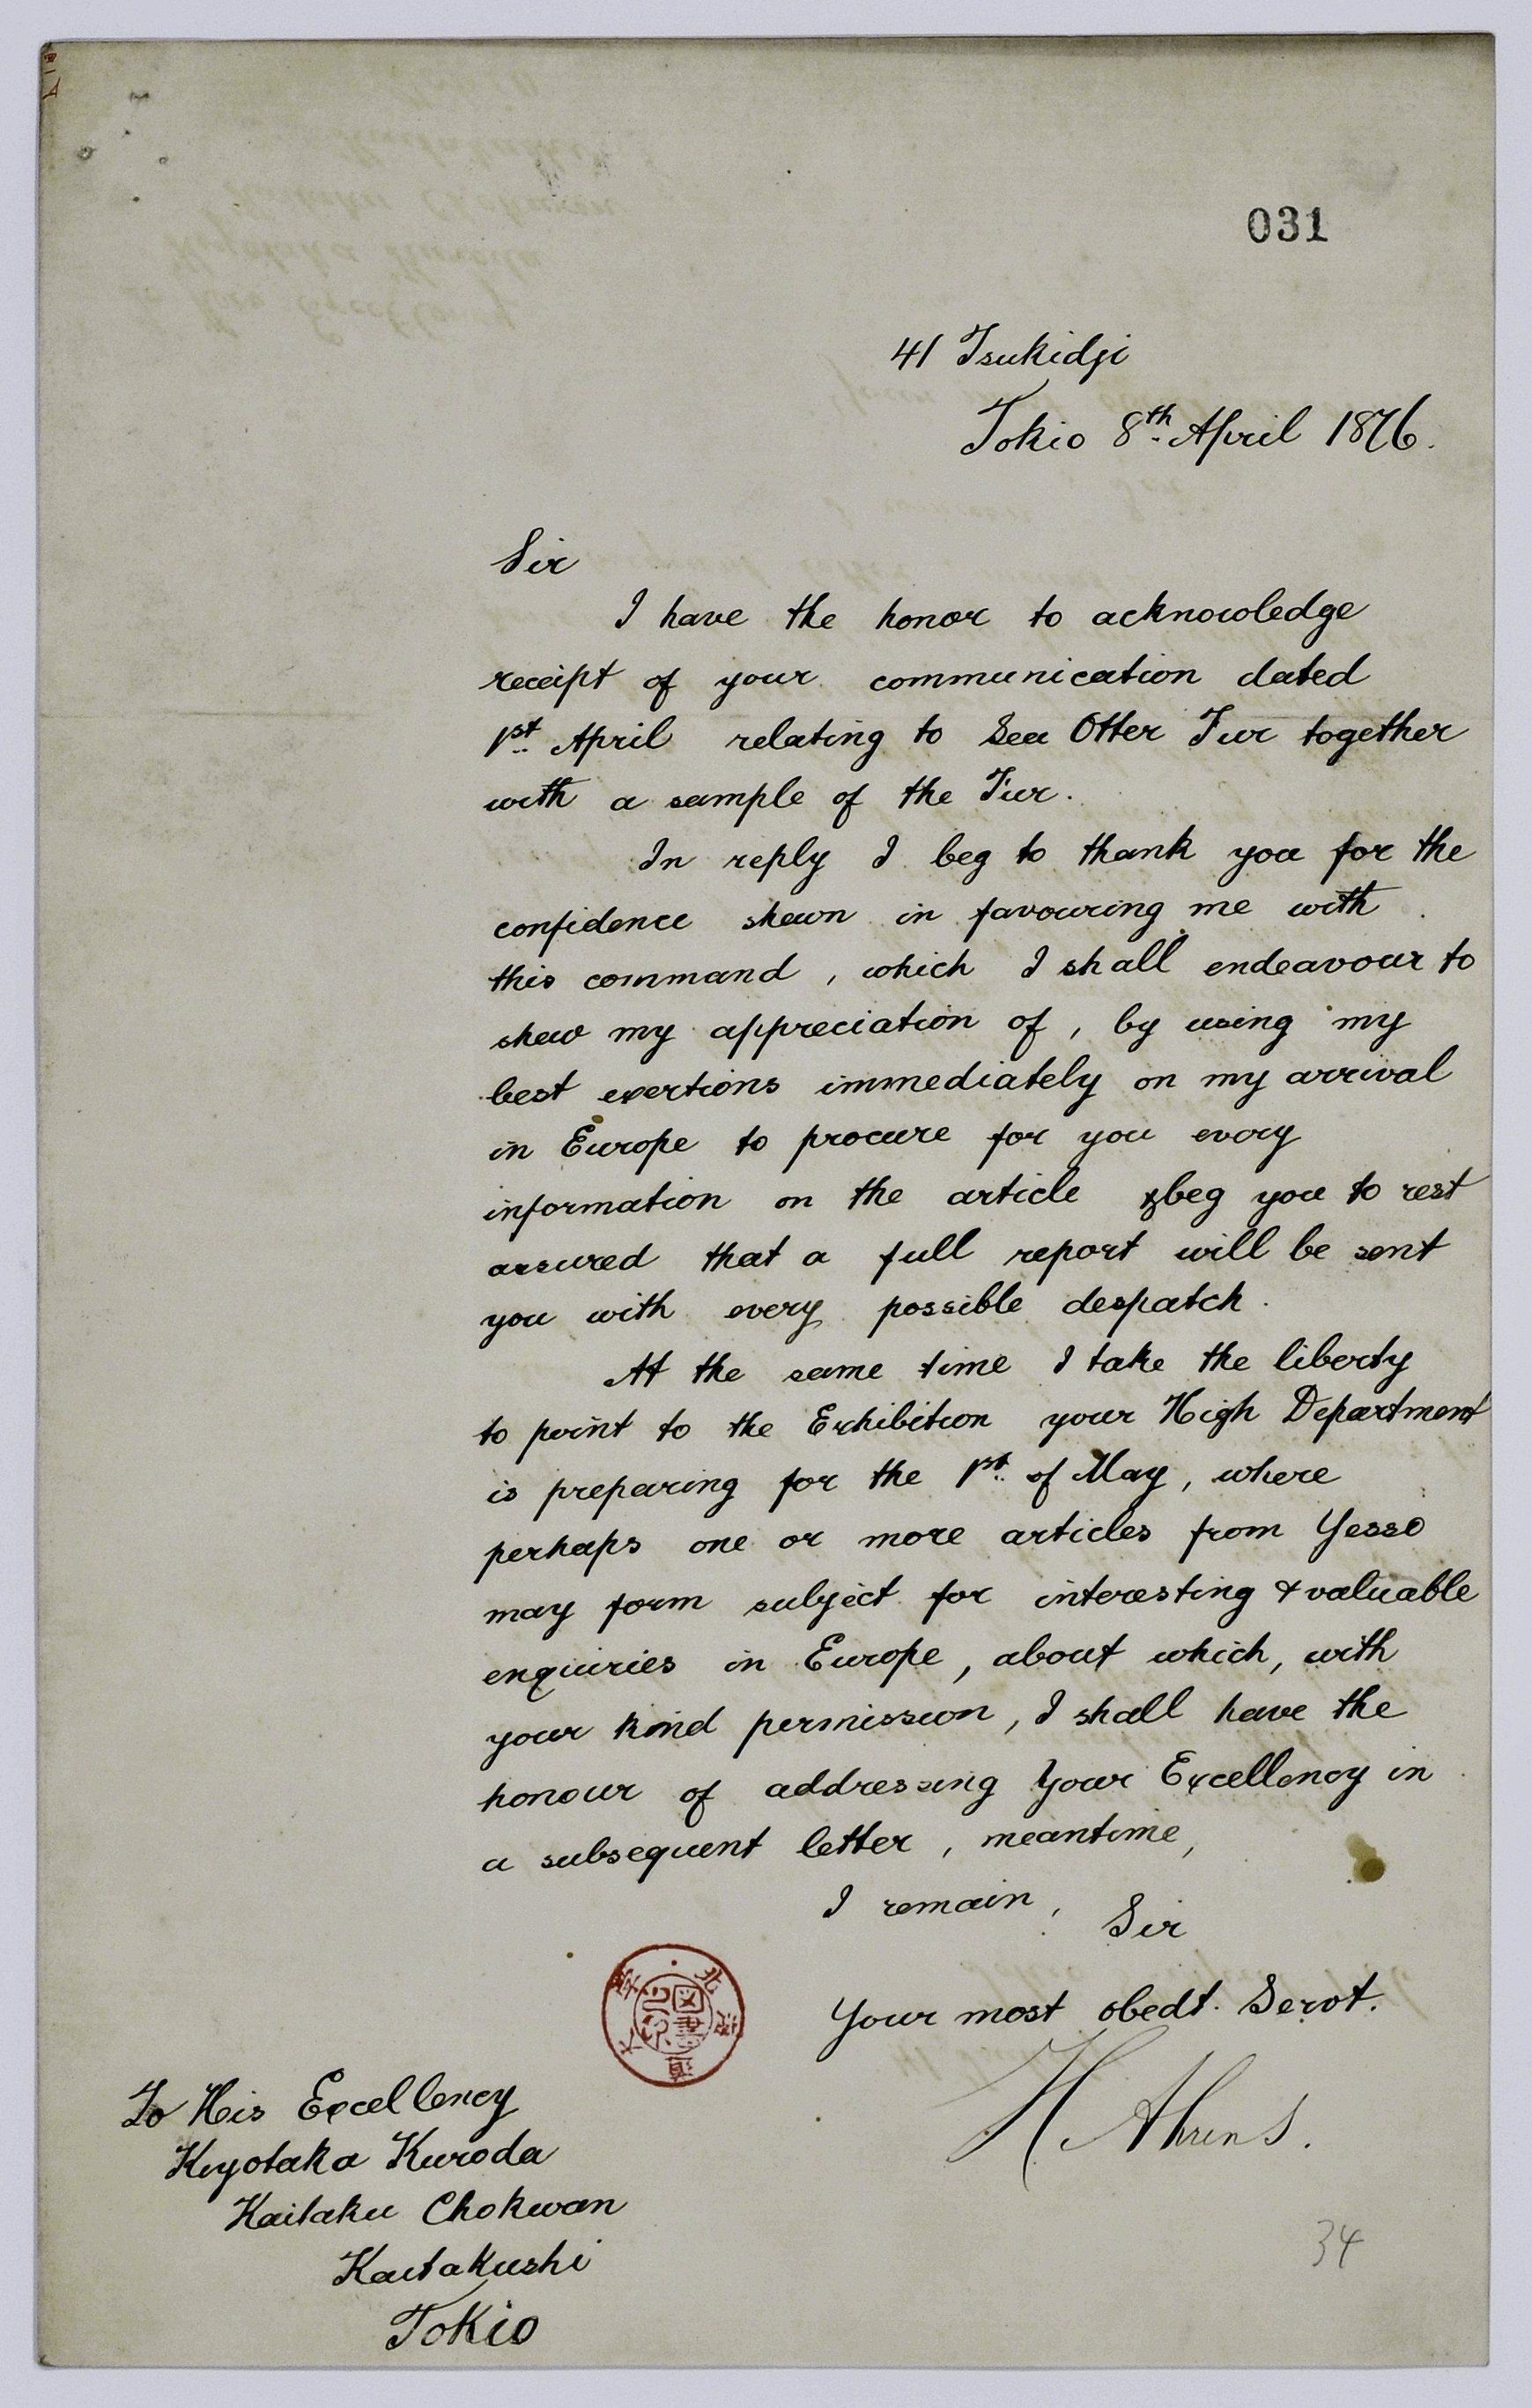 031
41 Tsukidji
Tokio 8th April 1876.
Sir
I have the honor to acknowledge
receipt of your communication dated
1st April relating to Sea Otter Fur together
with a sample of the Fur.
In reply I beg to thank you for the
confidence shewn in favouring me with
this command, which I shall endeavour to
shew my appreciation of, by using my
best exertions immediately on my arrival
in Europe to procure for you every
information on the article & beg you to rest
assured that a full report will be sent
you with every possible despatch.
At the same time I take the liberty
to point to the Exhibition your High Department
is preparing for the 1st of May, where
perhaps one or more articles from Yesso
may form subject for interesting & valuable
enquiries in Europe, about which, with
your kind permission, I shall have the
honour of addressing Your Excellency in
a subsequent letter, meantime,
I remain, Sir
Your most obedt. Servt.
H Ahrens.
北海道大學
図書
To His Excellency
Kiyotaka Kuroda
Kaitaku Chokwan
Kaitakushi
Tokio
34